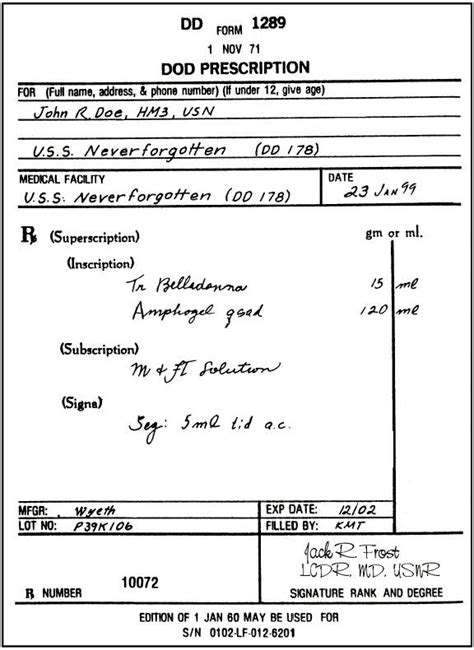 DD FORM 1289
1 NOV 71
DOD PRESCRIPTION
FOR (Full name, address, & phone number) (If under 12, give age)
John R. Doe, HM3, USN
U.S.S. Neverforgotten (DD 178)
MEDICAL FACILITY
U.S.S. Neverforgotten (DD 178)
DATE
23 Jan 99
℞ (Superscription) gm or ml.
(Inscription)
Tr Belladonna 15 ml
Amphogel qsad 120 ml
(Subscription)
M & Ft Solution
(Signa)
Sig: 5ml tid a.c.
MFGR: Wyeth EXP DATE: 12/02
LOT NO: P39K106 FILLED BY: KMT
Jack R. Frost
LCDR, MD, USNR
℞ NUMBER 10072 SIGNATURE RANK AND DEGREE
EDITION OF 1 JAN 60 MAY BE USED FOR
S/N 0102-LF-012-6201